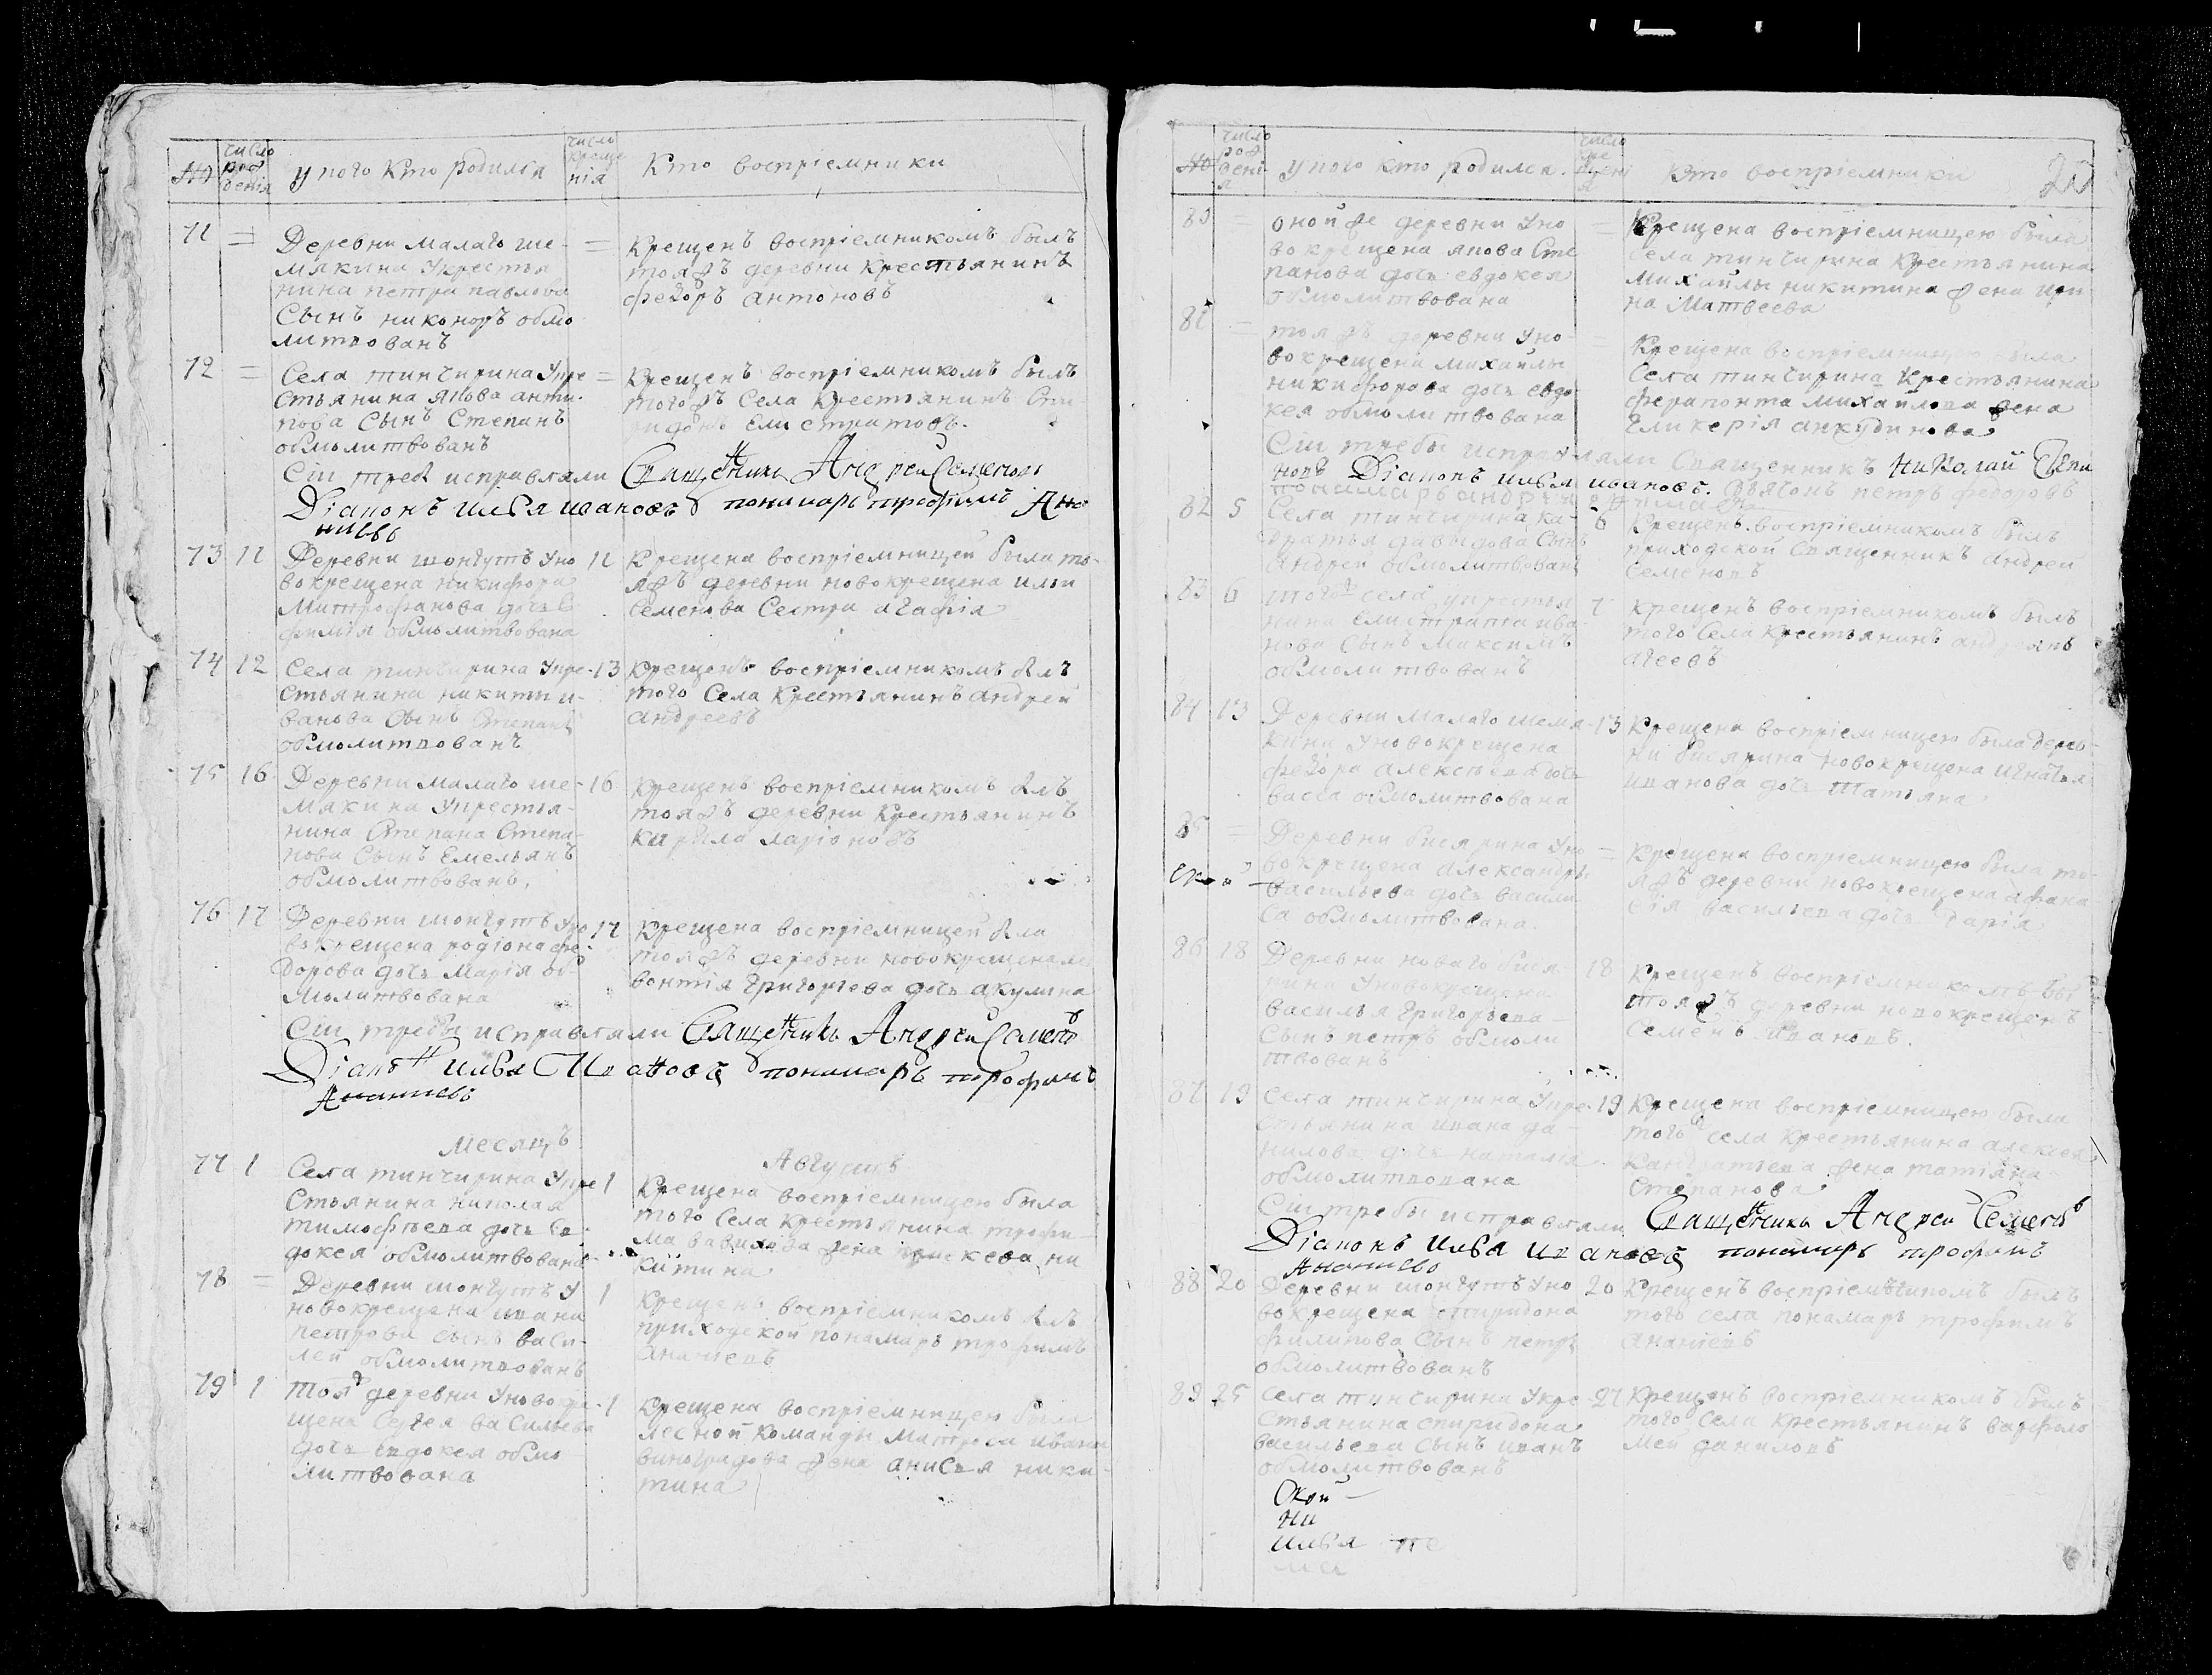 № число рождения у кого кто родился число крещения Кто воспріемники
71 = Деревни малаго ше-
мякина укрестья
нина петра павлова
Сынъ никоноръ обмо
литвованъ
= Крещенъ воспріемникомъ былъ
тояжъ деревни крестьянинъ
федоръ антоновъ
72 = Села тинчурина укре
стьянина якова анти-
пова Сынъ Степанъ
обмолитвованъ
= Крещенъ воспріемникомъ былъ
тогожъ Села Крестьянинъ Спи-
ридонъ Елистратовъ.
Сіи треб исправляли Священникъ Андрей Семеновъ
Діаконъ илья ивановъ пономарь трофимъ Ана
ниевъ
73 11 Деревни шонгутъ уно
вокрещена никифора
Митрофанова дочь Е
фимия обмолитвована
11 Крещена воспріемницей была то-
яжъ деревни новокрещена ильи
Семенова Сестра агафія
74 12 Села тинчурина укре-
стьянина никиты и-
ванова Сынъ Степанъ
обмолитвованъ
13 Крещенъ воспріемникомъ былъ
того Села Крестьянинъ андрей
андреевъ
75 16 Деревни малаго ше-
мякина укрестья-
нина Степана Степа-
нова Сынъ Емельянъ
обмолитвованъ.
16 Крещенъ воспріемникомъ былъ
тояжъ деревни Крестьянинъ
кирила ларіоновъ
76 17 Деревни шонгутъ уно
вокрещена родіона фе-
дорова дочь Марія об-
молитвована
17 Крещена воспріемницей была
тояжъ деревни новокрещена ле
вонтія григорьева дочь акулина
Сіи требы исправляли Священникъ Андрей Семеновъ
Діаконъ илья Ивановъ пономарь трофимъ
Ананиевъ
Месяцъ Августъ
77 1 Села тинчурина укре
Стьянина николая
тимофѣева дочь Ев-
докея обмолитвована
1 Крещена воспріемницею была
того Села Крестьянина трофи-
ма вавилова жена праскева ни
китина
78 = Деревни шонгутъ у
новокрещена ивана
петрова сынъ васи-
лей обмолитвованъ
1 Крещенъ воспріемникомъ былъ
приходской понамарь трофимъ
Ананиевъ
79 1 Тояжъ деревни уновокре-
щена Сергея васильева
дочь евдокея обмо
литвована
1 Крещена воспріемницею была
лесной команды матроса ивана
виноградова жена анисья ники-
тина
№ число рождения у кого кто родился. число крещения Кто воспріемники
80 = онойже деревни уно
вокрещена якова Сте
панова дочь евдокея
обмолитвована
= Крещена воспріемницею была
Села тинчурина Крестьянина
михайлы никитина жена ири
на Матвеева
81 = тояжъ деревни уно-
вокрещена михайлы
никифорова дочь евдо
кея обмолитвована
= Крещена воспріемницею была
Села тинчурина Крестьянина
ферапонта михайлова жена
гликерія анкудинова
Сіи требы исправляли Священникъ николай Степа
новъ Діаконъ илья ивановъ. дьячокъ петръ федоровъ
82 5 Села тинчурина ка-
дратья давыдова Сынъ
Андрей обмолитвованъ
6 Крещенъ воспріемникомъ былъ
приходской Священникъ андрей
Семеновъ
83 6 тогожъ села укрестья
нина Елистрата ива
нова Сынъ Максимъ
обмолитвованъ
7 крещенъ воспріемникомъ былъ
того Села Крестьянинъ андреянъ
агеевъ
84 13 Деревни малаго шемя-
кина уновокрещена
федора алексѣева дочь
васса обмолитвована
13 Крещена воспріемницею была дерев-
ни бисярина новокрещена игнатья
иванова дочь Татьяна
85 = Деревни бисярина уно
вокрещена александры
васильева дочь васили
са обмолитвована.
= Крещена воспріемницею была то-
яжъ деревни новокрещена афана
сія васильева дочь дарія
86 18 Деревни новаго бися-
рина уновокрещена
василья григорьева
Сынъ петръ обмоли
твованъ
18 Крещенъ воспріемникомъ бы
тояжъ деревни новокрещенъ
Семенъ ивановъ.
87 19 Села тинчурина укре-
стьянина ивана да-
нилова дочь наталя
обмолитвована
19 Крещена воспріемницею была
тогожъ села Крестьянина алексея
Кандратьева жена татіяна
Степанова
Сіи требы исправляли Священникъ Андрей Семеновъ
Діаконъ илья ивановъ пономарь трофимъ
Ананиевъ
88 20 Деревни шонгутъ уно
вокрещена Спиридона
филипова Сынъ петръ
обмолитвованъ
20 Крещенъ воспріемникомъ былъ
того села понамарь трофимъ
ананиевъ
89 25 Села тинчурина укре-
стьянина спиридона
васильева Сынъ иванъ
обмолитвованъ
27 Крещенъ воспріемникомъ былъ
того Села крестьянинъ варфоло
мей даниловъ
Окон
ни
илья